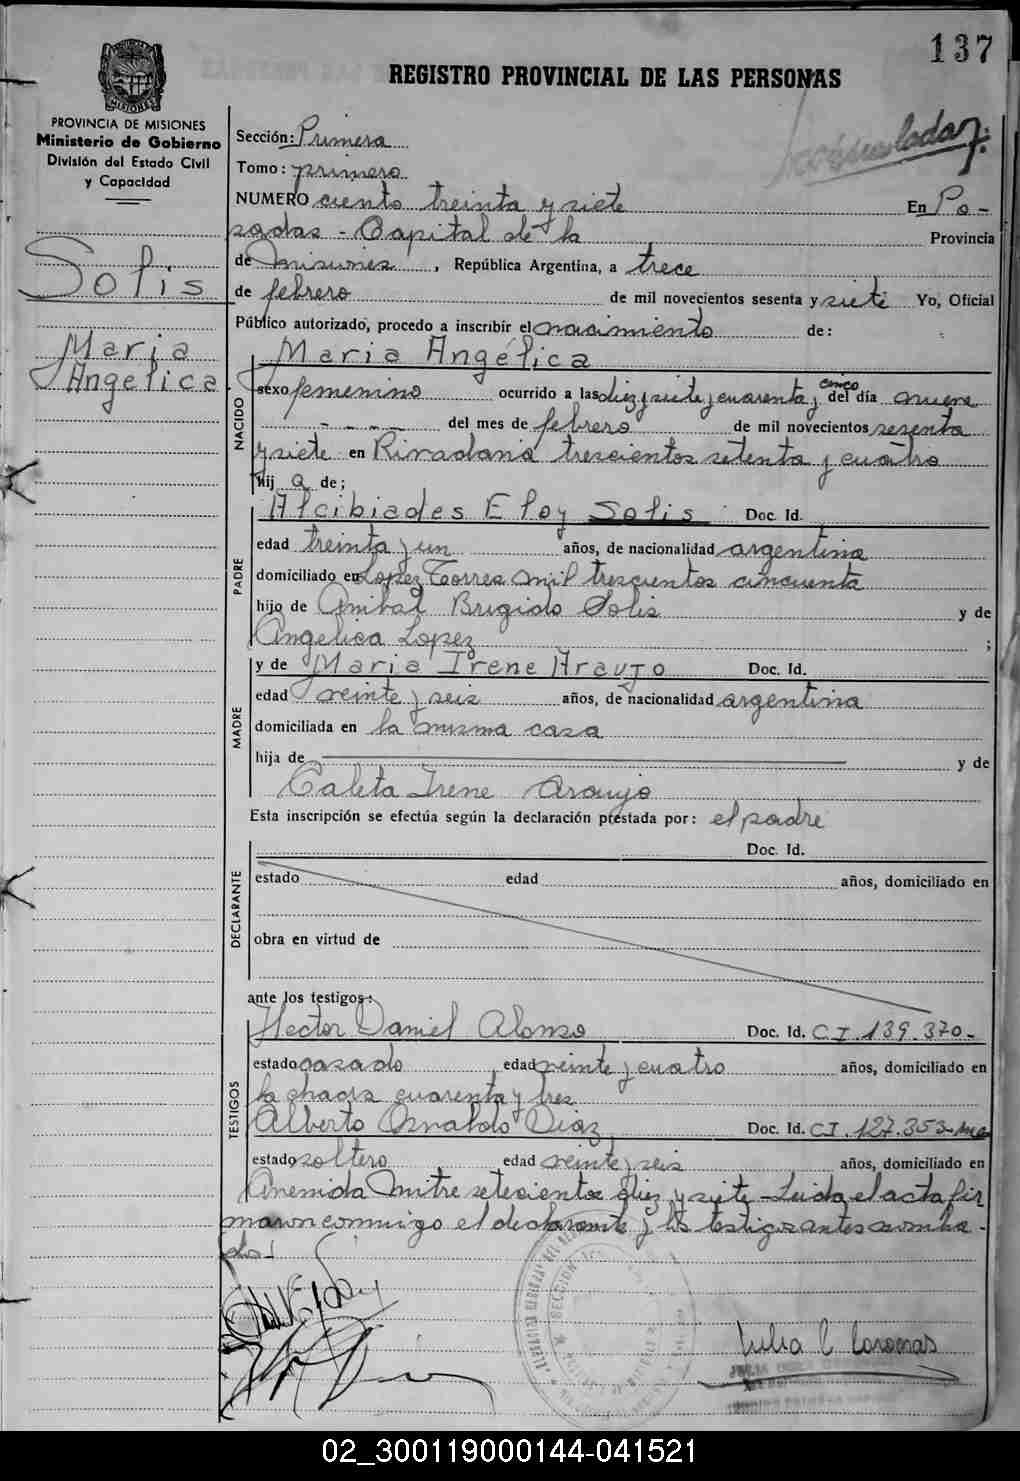 137
REGISTRO PROVINCIAL DE LAS PERSONAS
PROVINCIA DE MISIONES
Ministerio de Gobierno
División del Estado Civil
y Capacidad
Solis
Maria
Angelica
Sección: Primera
Tomo: primero
NUMERO ciento treinta y siete En Po-
sadas - Capital de la Provincia
de misiones, República Argentina, a trece
de febrero de mil novecientos sesenta y siete Yo, Oficial
Público autorizado, procedo a inscribir el nacimiento de:
NACIDO
Maria Angélica
sexo femenino ocurrido a las diez y siete y cuarenta y cinco del día nueve
- - - - del mes de febrero de mil novecientos sesenta
y siete en Rivadavia trescientos setenta y cuatro
hij a de;
PADRE
Alcibiades Eloy Solis Doc. Id.
edad treinta y un años, de nacionalidad argentina
domiciliado en Lopez Torres mil trescientos cincuenta
hijo de Anibal Brigido Solis y de
Angelica Lopez ;
MADRE
y de Maria Irene Araujo Doc. Id.
edad veinte y seis años, de nacionalidad argentina
domiciliada en la misma casa
hija de y de
Caleta Irene Araujo
Esta inscripción se efectúa según la declaración prestada por: el padre
DECLARANTE
Doc. Id.
estado edad años, domiciliado en
obra en virtud de
ante los testigos:
TESTIGOS
Hector Daniel Alonso Doc. Id. C.I. 139.370-
estado casado edad veinte y cuatro años, domiciliado en
la chacra cuarenta y tres
Alberto Osvaldo Diaz Doc. Id. C.I. 127.353-
estado soltero edad veinte y seis años, domiciliado en
Avenida Mitre setecientos diez y siete - Leida el acta fir
maron conmigo el declarante y los testigos antes nombra-
dos -
SECCION
02_300119000144-041521